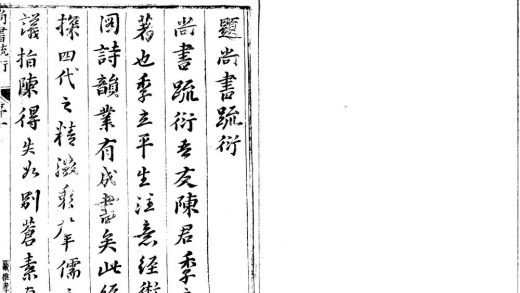 題尚書疏衍
尚書疏衍吾友陳君季
著也季立平生注意經術
詩韻業有成書矣此
探四代之精微年儒
議指陳得失如別蒼素
尚書疏衍 序一